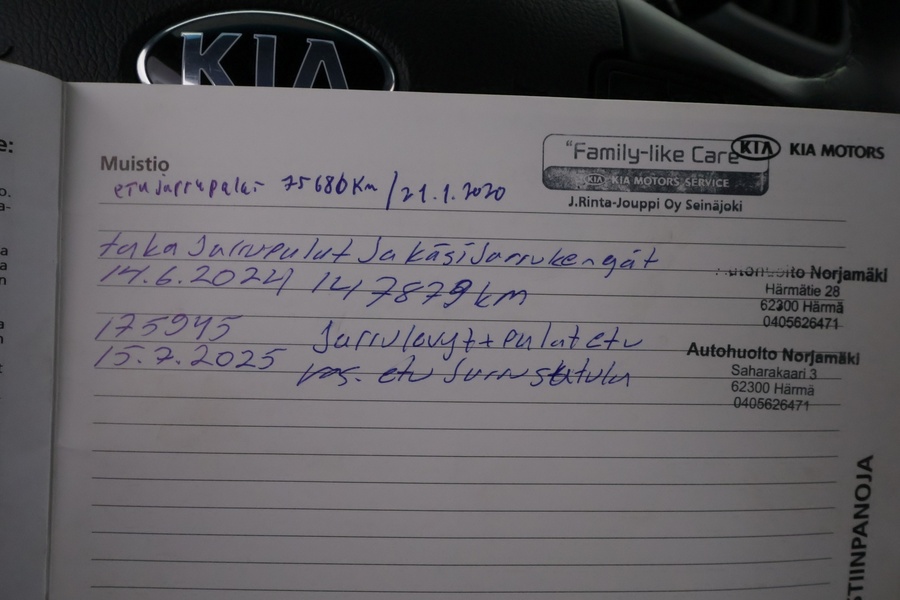 KIA
e:
o.
a-
a
a
n
Muistio
"Family-like Care"
KIA MOTORS SERVICE
KIA KIA MOTORS
J.Rinta-Jouppi Oy Seinäjoki
etu jarrupalat 75680 km / 21.1.2020
taka jarrupalat ja käsijarrukengät
14.6.2024 147879 km
Autohuolto Norjamäki
Härmätie 28
62300 Härmä
0405626471
175945 Jarrulevyt + palat etu
15.7.2025 vas. etu Jarrusatula
Autohuolto Norjamäki
Saharakaari 3
62300 Härmä
0405626471
STIINPANOJA